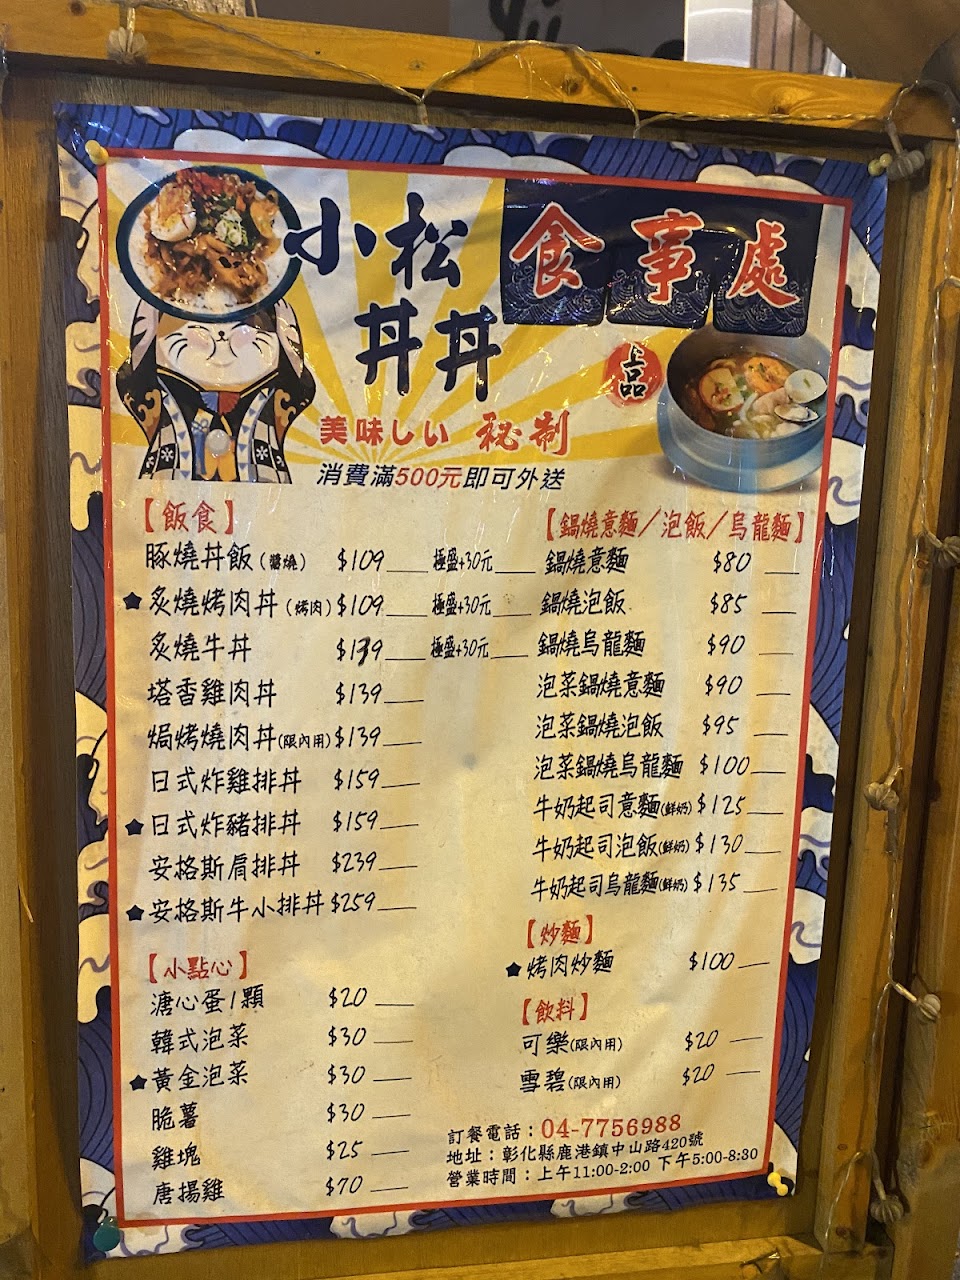 小松 食事處
丼丼
上品
美味しい 秘制
消費滿500元即可外送
【飯食】
豚燒丼飯(醬燒) $109 極盛+30元
★炙燒烤肉丼(烤肉) $109 極盛+30元
炙燒牛丼 $139 極盛+30元
塔香雞肉丼 $139
焗烤燒肉丼(限內用) $139
日式炸雞排丼 $159
★日式炸豬排丼 $159
安格斯肩排丼 $239
★安格斯牛小排丼 $259
【小點心】
溏心蛋1顆 $20
韓式泡菜 $30
★黃金泡菜 $30
脆薯 $30
雞塊 $25
唐揚雞 $70
【鍋燒意麵/泡飯/烏龍麵】
鍋燒意麵 $80
鍋燒泡飯 $85
鍋燒烏龍麵 $90
泡菜鍋燒意麵 $90
泡菜鍋燒泡飯 $95
泡菜鍋燒烏龍麵 $100
牛奶起司意麵(鮮奶) $125
牛奶起司泡飯(鮮奶) $130
牛奶起司烏龍麵(鮮奶) $135
【炒麵】
★烤肉炒麵 $100
【飲料】
可樂(限內用) $20
雪碧(限內用) $20
訂餐電話：04-7756988
地址：彰化縣鹿港鎮中山路420號
營業時間：上午11:00-2:00 下午5:00-8:30